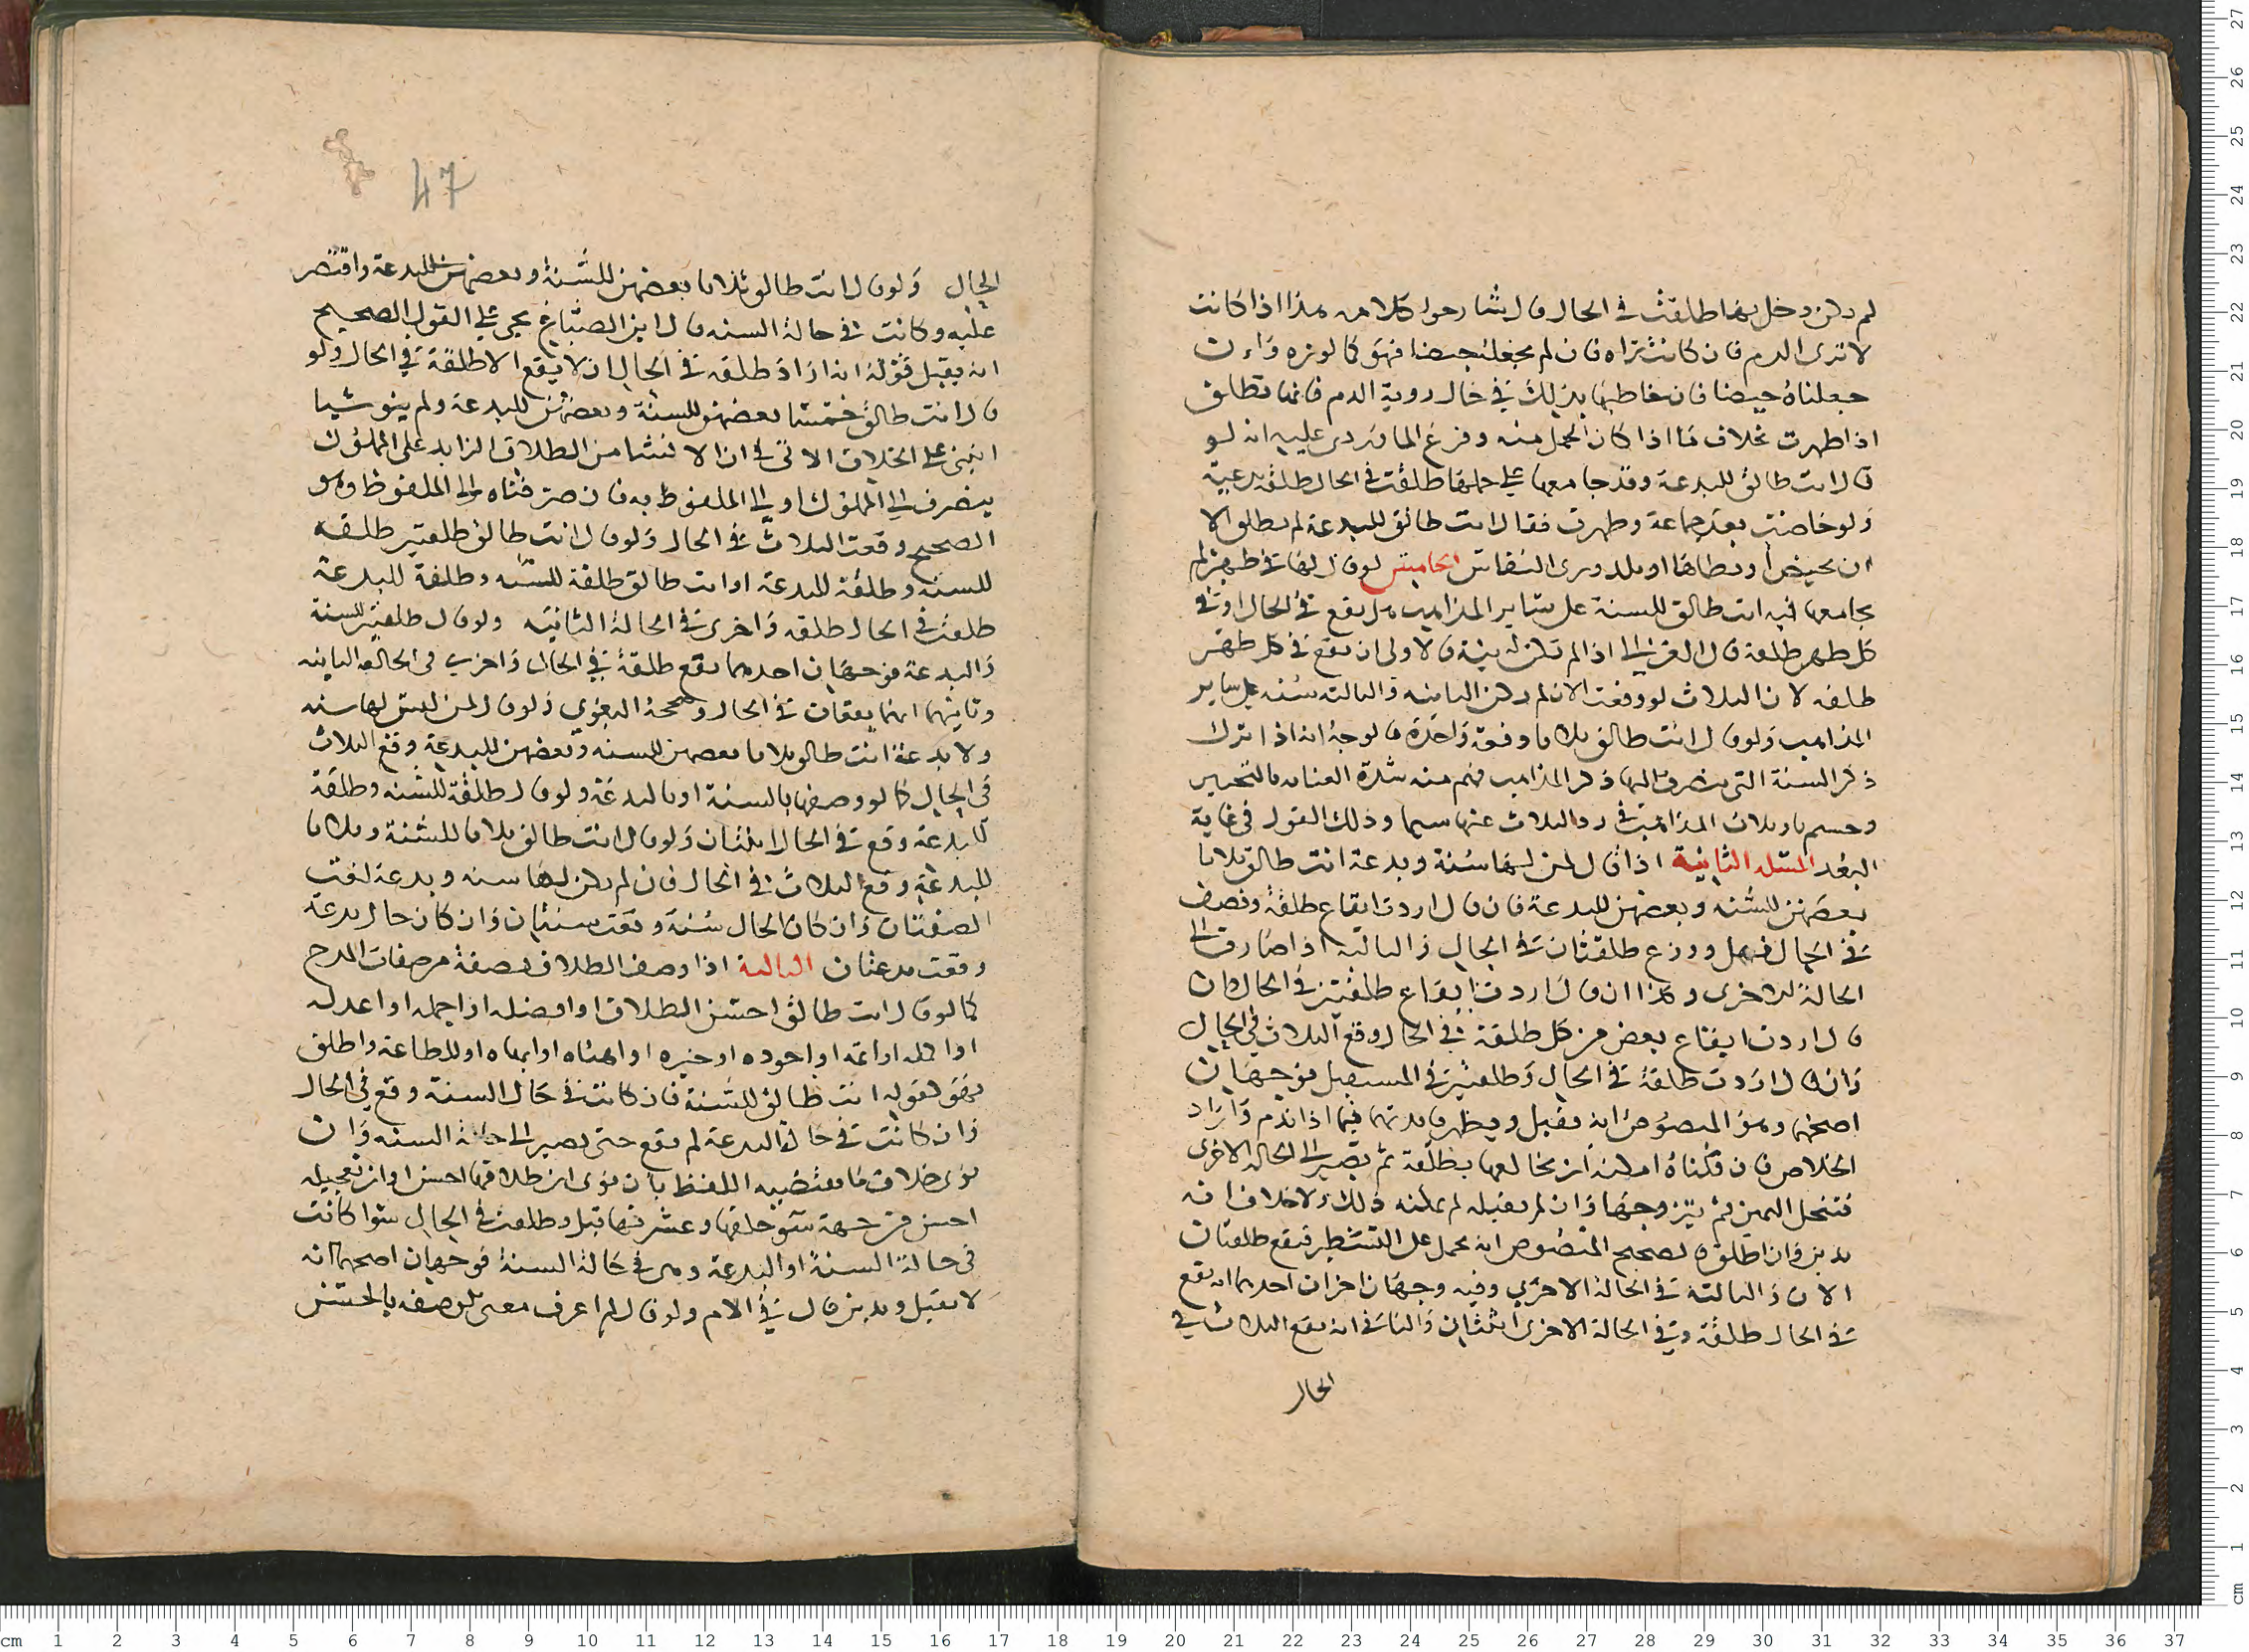 لم يكن دخل بها طلقت في الحال قال شارحوا كلامه هذا اذا كانت
لا ترى الدم فان كانت تراه فان لم نجعله حيضا فهو كما لو تره وان
جعلناه حيضا فان خاطبها بذلك في حال روية الدم فانما تطلق
اذا طهرت بخلاف ما اذا كان الحمل منه وفرغ الماوردى عليه انه لو
قال انت طالق للبدعة وقد جامعها على حملها طلقت في الحال طلقة بدعية
ولو حاضت بعد جماعه وطهرت فقال انت طالق للبدعة لم تطلق الا
ان تحيض او يطاها او تلد وترى النفاس الخامس لو قال لها في طهر لم
يجامعها فيه انت طالق للسنة على ساير المذاهب هل يقع في الحال او في
كل طهر طلقة قال الغزالى اذا لم تكن له نية فالاولى ان يقع في كل طهر
طلقه لان الثلاث لو وقعت الان لم يكن الثانيه والثالثه سنه على ساير
المذاهب ولو قال انت طالق ثلاثا دفعة واحدة فالوجه انه اذا ترك
ذكر السنة التي ينصرف اليها ذكر المذاهب فهم منه شدة العنايه بالتحرير
وحسم تاويلات المذاهب في رد الثلاث عنها سيما وذلك القول في غاية
البعد المسئله الثانية اذا قال لمن لها سنة وبدعة انت طالق ثلاثا
بعضهن للسنه وبعضهن للبدعة فان قال اردت ايقاع طلقة ونصف
في الحال قبل ووقع طلقتان في الحال والثالثه اذا صارت الى
الحالة الاخرى وكذا ان قال اردت ايقاع طلقتين في الحال وان
قال اردت ايقاع بعض من كل طلقة في الحال وقع الثلاث في الحال
وان قال اردت طلقة في الحال وطلقتين في المستقبل فوجهان
اصحهما وهو المنصوص انه يقبل ويظهر فايدتهما فيما اذا ندم واراد
الخلاص فان قلناه امكنه ان يخالعها بطلقة ثم تصير الى الحالة الاخرى
فتنحل اليمين ثم يتزوجها وان لم نقبله لم يمكنه ذلك ولا خلاف انه
يدين وان اطلق فالصحيح المنصوص انه يحمل على التشطير فتقع طلقتان
الان والثالثة في الحالة الاخرى وفيه وجهان اخران احدهما انه يقع
في الحال طلقة وفي الحالة الاخرى اثنتان والثانى انه يقع الثلاث في
الحال
47
الحال ولو قال انت طالق ثلاثا بعضهن للسنة وبعضهن للبدعة واقتصر
عليه وكانت في حالة السنه قال ابن الصباغ يجي على القول الصحيح
انه يقبل قوله انه اراد طلقه في الحال ان لا يقع الا طلقة في الحال ولو
قال انت طالق خمسا بعضهن للسنة وبعضهن للبدعة ولم ينو شيا
انبنى على الخلاف الاتى في ان الانشا من الطلاق الزايد على المملوك
ينصرف الى المملوك او الى الملفوظ به فان صرفناه الى الملفوظ وهو
الصحيح وقعت الثلاث في الحال ولو قال انت طالق طلقتين طلقه
للسنه وطلقة للبدعة او انت طالق طلقة للسنه وطلقة للبدعة
طلقت في الحال طلقه واخرى في الحالة الثانيه ولو قال طلقتين للسنة
والبدعة فوجهان احدهما يقع طلقة في الحال واخرى في الحالة الثانيه
وثانيهما انهما يقعان في الحال وصححه البغوى ولو قال لمن ليس لها سنه
ولا بدعة انت طالق ثلاثا بعضهن للسنه وبعضهن للبدعة وقع الثلاث
في الحال كما لو وصفها بالسنة او بالبدعة ولو قال طلقة للسنه وطلقة
للبدعة وقع في الحال اثنتان ولو قال انت طالق ثلاثا للسنة وثلاثا
للبدعة وقع الثلاث في الحال فان لم يكن لها سنه وبدعة لغت
الصفتان وان كان الحال سنة وقعت سنيتان وان كان حال بدعة
وقعت بدعيتان الثالثة اذا وصف الطلاق بصفة من صفات المدح
كما لو قال انت طالق احسن الطلاق او افضله او اجمله او اعدله
او اكمله او اتمه او اجوده او خيره او اهناه او ابهاه او للطاعة واطلق
فهو كقوله انت طالق للسنة فان كانت في حال السنة وقع في الحال
وان كانت في حالة البدعة لم يقع حتى يصير الى حالة السنه وان
نوى خلاف ما يقتضيه اللفظ بان نوى ان طلاقها احسن او ان تعجيله
احسن من جهة سو خلقها وعشرتها قبل وطلقت في الحال سوا كانت
في حالة السنة او البدعة وهى في حالة السنة فوجهان اصحهما انه
لا يقبل ويدين قال في الام ولو قال لم اعرف معنى الوصف بالحسن